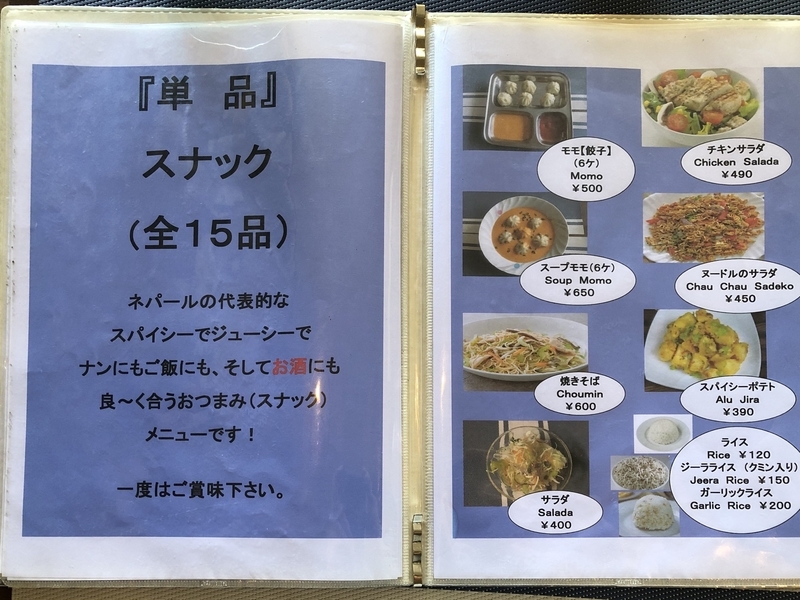 『単　品』
スナック
(全１５品)
ネパールの代表的な
スパイシーでジューシーで
ナンにもご飯にも、そしてお酒にも
良～く合うおつまみ(スナック)
メニューです！
一度はご賞味下さい。
モモ【餃子】
(6ケ)
Momo
￥500
チキンサラダ
Chicken Salada
￥490
スープモモ(6ケ)
Soup Momo
￥650
ヌードルのサラダ
Chau Chau Sadeko
￥450
焼きそば
Choumin
￥600
スパイシーポテト
Alu Jira
￥390
サラダ
Salada
￥400
ライス
Rice ￥120
ジーラライス (クミン入り)
Jeera Rice ￥150
ガーリックライス
Garlic Rice ￥200